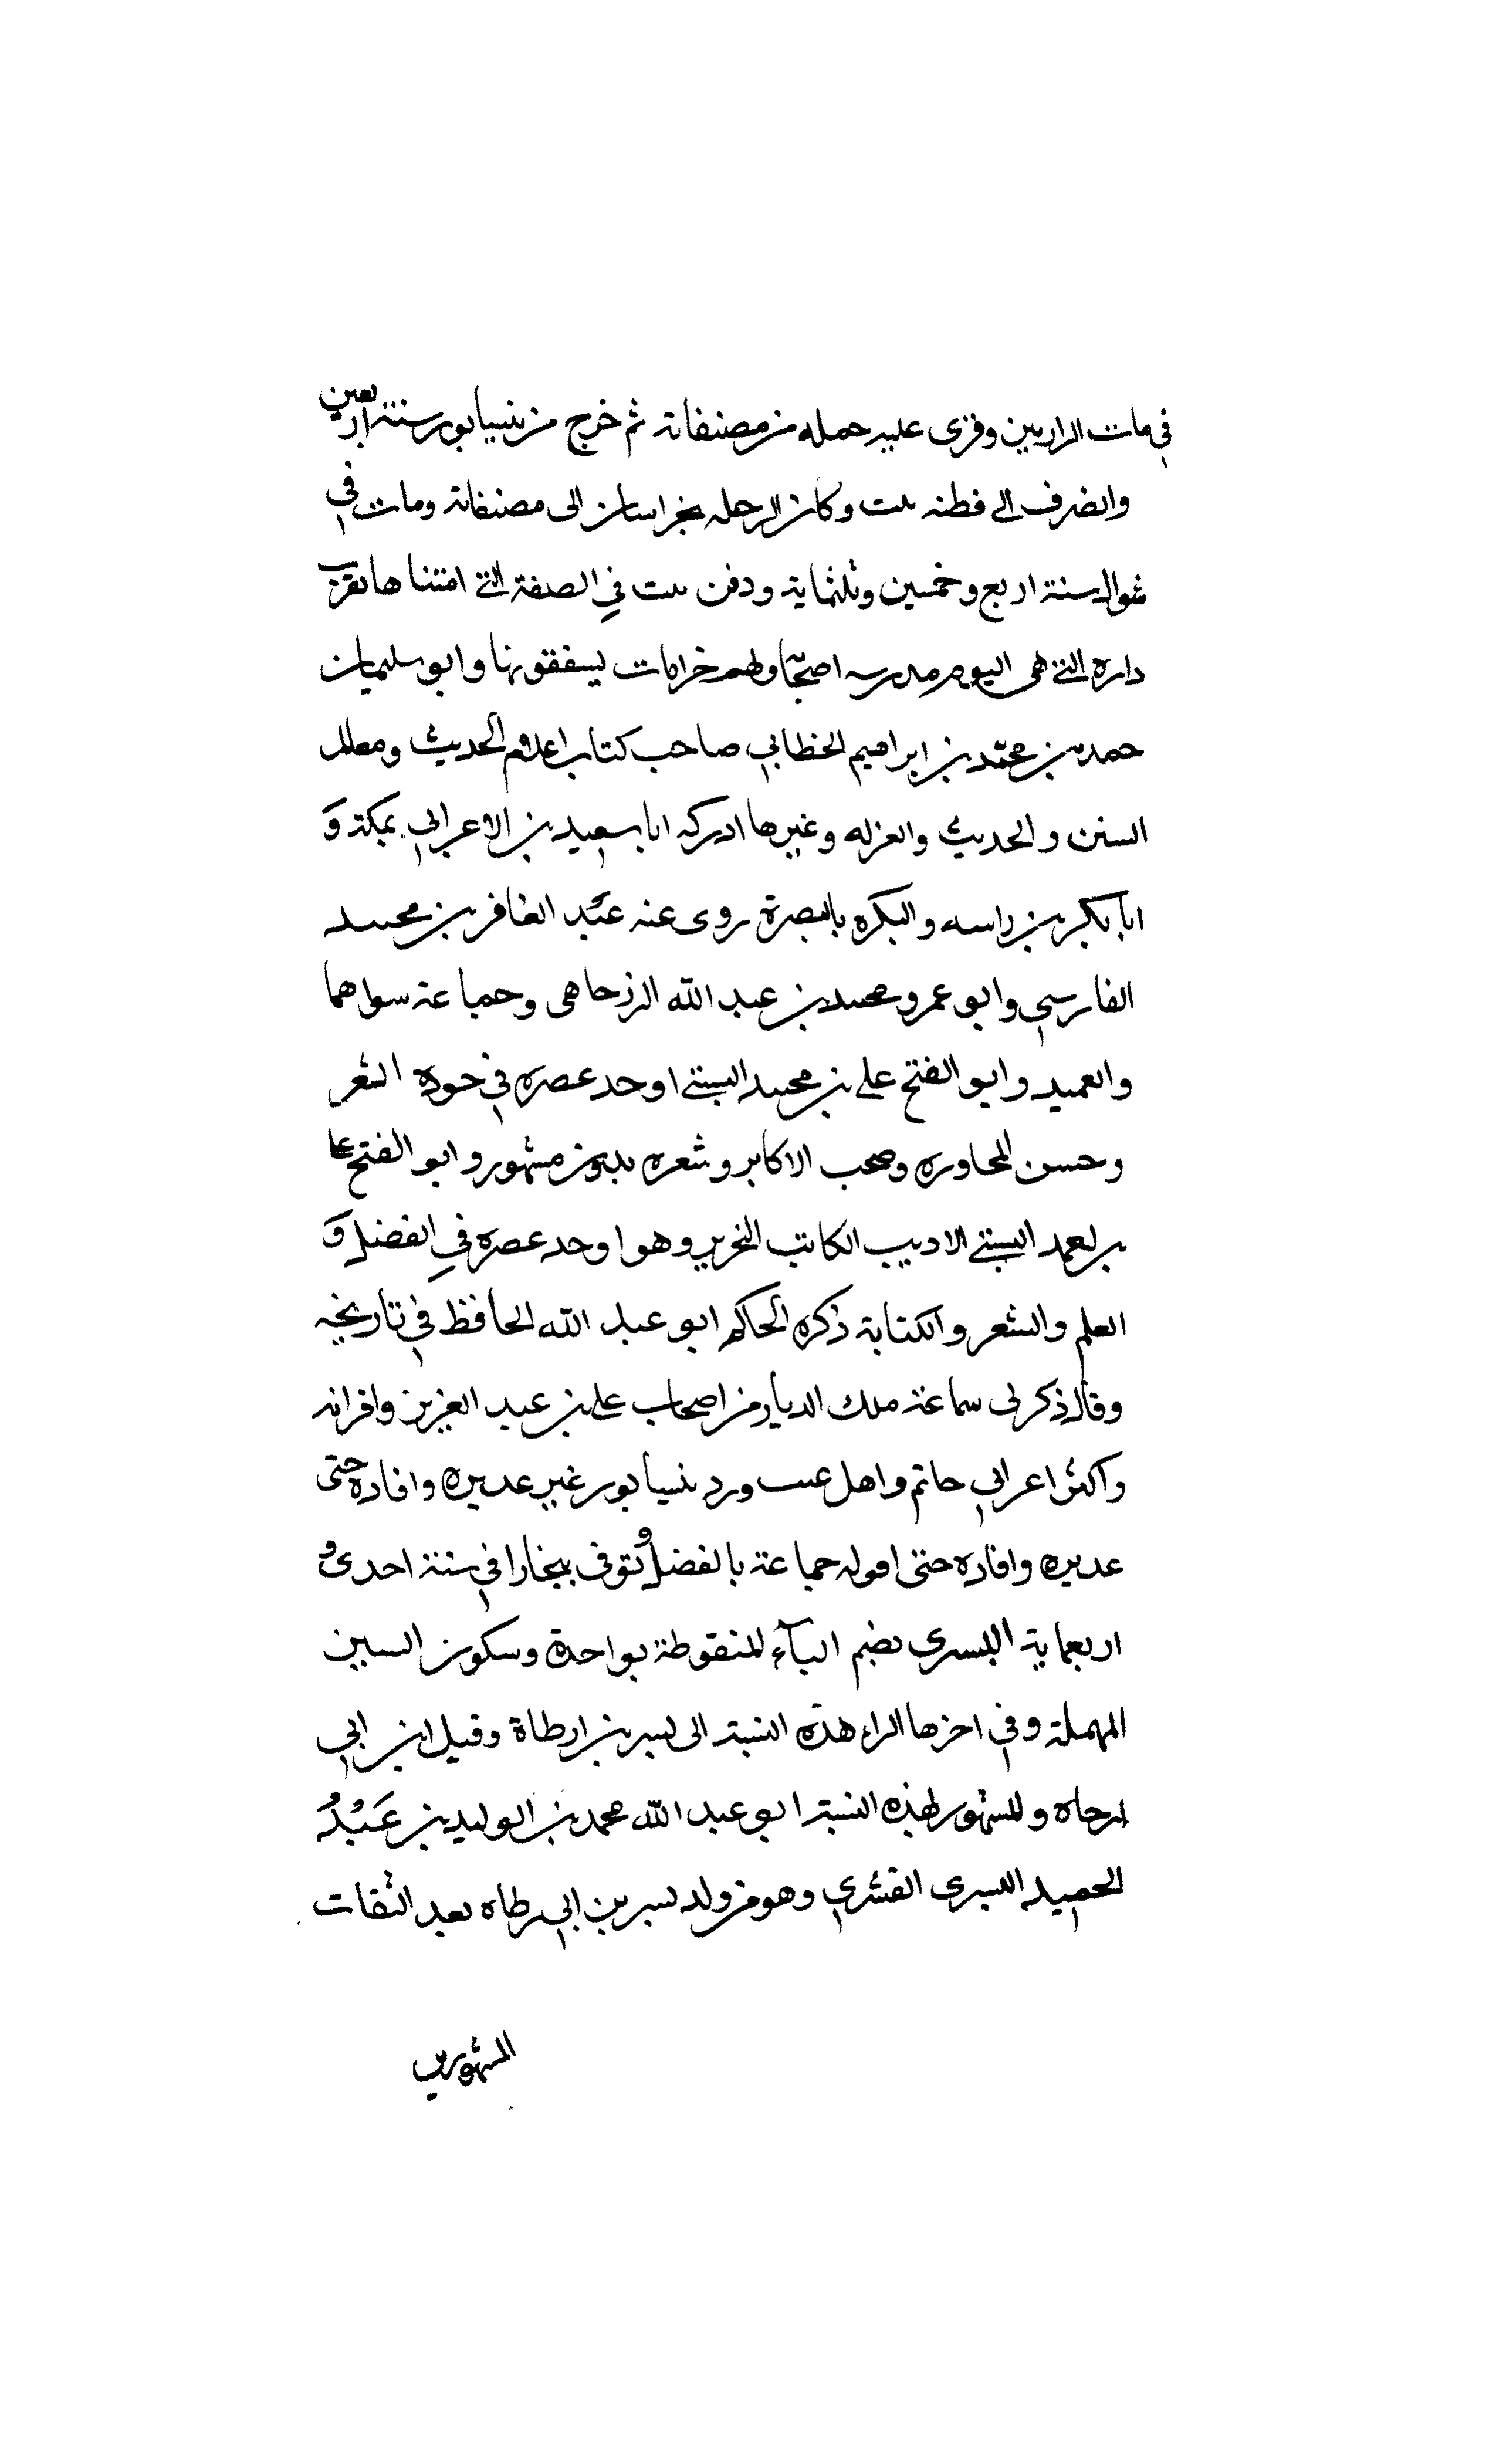 في مات الراريين وقرى عليه حمله من مصنفاته ثم خرج من نيسابور سنة اربعين
وانصرف الى فطنه ىست وكان الرحله بخراسان الى مصنفاته ومات في
شوال سنة اربع وخمسين وثلثماية ودفن ىىست في الصفة التي امتناها بقرب
داره التي هي اليوم مدرسه اصحابه ولهم خرامات يسفقونها وابو سليمان
حمد بن محمد بن ابراهيم الخطابي صاحب كتاب اعلام الحديث ومعالم
السنن والحديث والعزله وغيرها ادركه ابا سعيد بن الاعرابي بمكة و
ابا بكر بن راسه والبكره بالبصرة روى عنه عبد الغافر بن محمد
الفارسي وابو عمرو محمد بن عبد الله الرزحاهى وجماعة سواهما
والعميد وابو الفتح علي بن محمد البستي اوحد عصره في جوده الشعر
وحسن المحاوره وصحب الاكابر وشعره مشهور وابو الفتح على
بن احمد البستي الاديب الكاتب النحرير وهو اوحد عصره في الفضل و
العلم والشعر والكتابة ذكره الحاكم ابو عبد الله الحافظ في تاريخه
وقال ذكر لى سماعة ملك الديار من اصحاب علي بن عبد العزيز واقرانه
واكثر اعرابي حاتم واهل عىىب ورد نيسابور غير عديره وافاده حتى
عديره وافاده حتى اقوله جماعة بالفضل وتوفى ببخارا في سنة احدى و
اربعماية البسرى بضم البآء المنقوطة بواحدة وسكون السين
المهملة وفي اخرها الراء هذه النسبة الى بسر بن ارطاة وقيل ابن ابي
ارطاه والمشهور بهذه النسبة ابو عبد الله محمد بن الوليد بن عَبْدُ
الحميد البسرى القشري وهو من ولد بسر بن ابي رطاه بعد الثقات
المشهورين